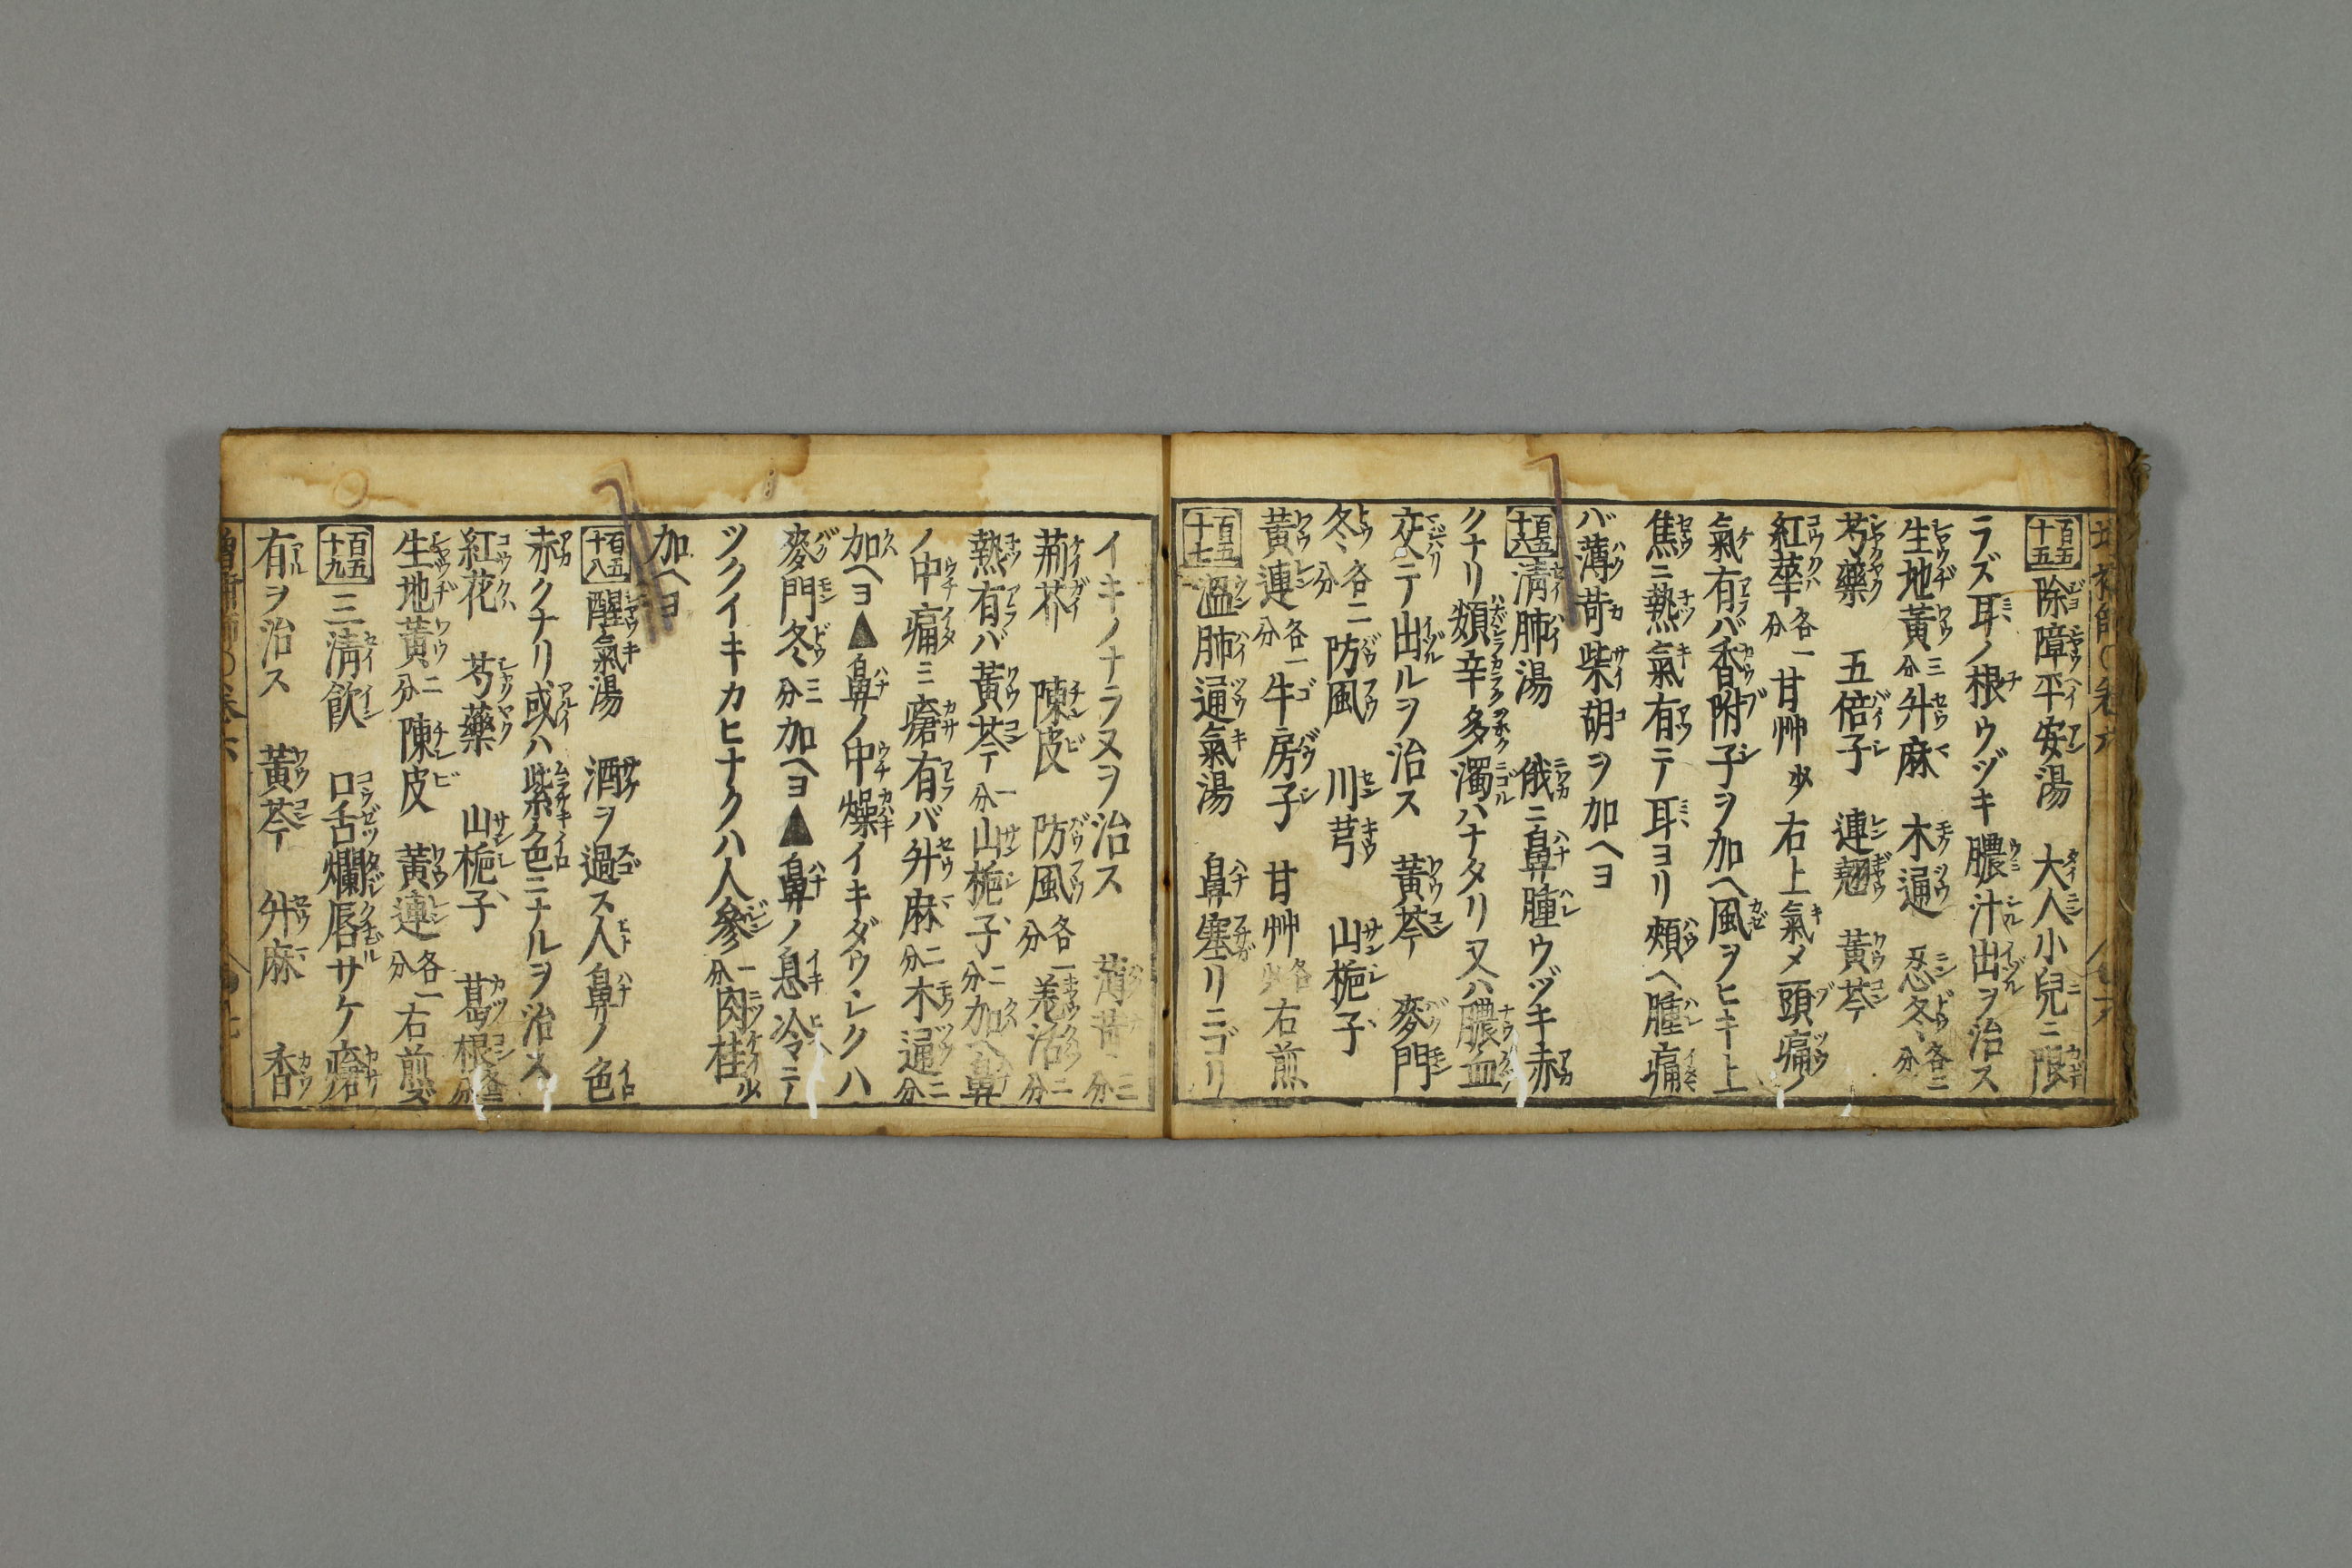 百五十五 除障平安湯 大人小兒ニ限
ラズ耳ノ根ウヅキ膿汁出ヲ治ス
生地黃三分 升麻 木通 忍冬各二分
芍藥 五倍子 連翹 黃芩
紅華各一分 甘艸少 右上氣〆頭痛ノ
氣有バ香附子ヲ加ヘ風ヲヒキ上
焦ニ熱氣有テ耳ヨリ頰ヘ腫痛
バ薄苛柴胡ヲ加ヘヨ
百五十六 淸肺湯 俄ニ鼻腫ウヅキ赤
クナリ頞辛多濁ハナタリ又ハ膿血
交テ出ルヲ治ス 黃芩 麥門
冬各二分 防風 川芎 山梔子
黃連各一分 牛房子 甘艸各少 右煎
百五十七 溫肺通氣湯 鼻塞リニゴリ
イキノナラヌヲ治ス 薄苛三分
荊芥 陳皮 防風各一分 羗活二分
熱有バ黃芩一分山梔子二分加ヘ鼻
ノ中痛ミ瘡有バ升麻二分木通二分
加ヘヨ▲鼻ノ中燥イキダウシクハ
麥門冬三分加ヘヨ▲鼻ノ息冷ニテ
ツクイキカヒナクハ人參一分肉桂少
加ヘヨ
百五十八 醒氣湯 酒ヲ過ス人鼻ノ色
赤クナリ或ハ紫色ニナルヲ治ス
紅花 芍藥 山梔子 葛根各三分
生地黃二分 陳皮 黃連各一分 右煎ズ
百五十九 三淸飮 口舌爛唇サケノ瘡
有ヲ治ス 黃芩 升麻 香